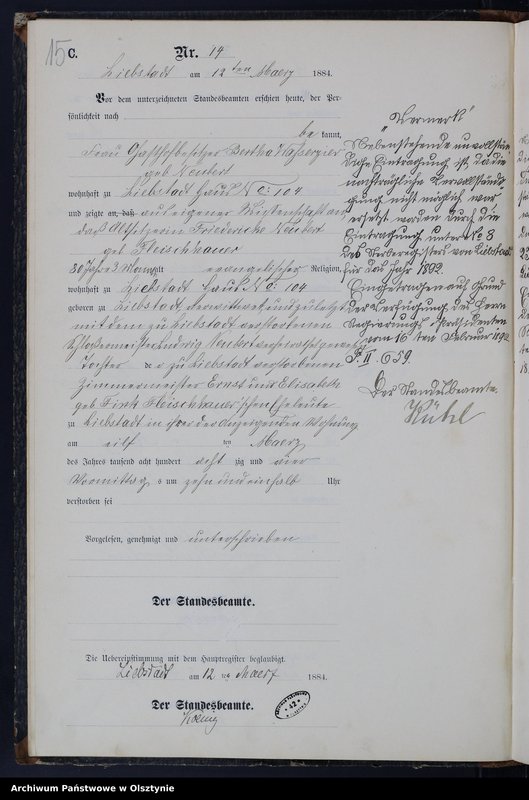 15
C.
Nr. 14
Liebstadt am 12 ten Maerz 1884.
Vor dem unterzeichneten Standesbeamten erschien heute, der Per-
sönlichkeit nach
be kannt,
Frau Gasthofbesitzer Bertha
geb Neubert
wohnhaft zu Liebstadt Haus No: 104
und zeigte an, daß aus eigener Wissenschaft an
daß Friederike Neubert
geb Fleischhauer
80 Jahre 3 Monate alt evangelischer Religion,
wohnhaft zu Liebstadt Haus No: 104
geboren zu Liebstadt, verwittwet und zuletzt
mit dem zu Liebstadt verstorbenen
Ludwig Neubert verheirathet gewesen
Tochter der zu Liebstadt verstorbenen
Zimmermeister Ernst und Elisabeth
geb Fink Fleischhauer'schen Eheleute
zu Liebstadt in der Anzeigenden Wohnung
am eilf ten Maerz
des Jahres tausend acht hundert acht zig und vier
Vormittag s um zehn und einhalb Uhr
verstorben sei
Vorgelesen, genehmigt und unterschrieben
Der Standesbeamte.
Die Uebereinstimmung mit dem Hauptregister beglaubigt.
Liebstadt am 12 ten Maerz 1884.
Der Standesbeamte.
Koenig
"Vermerk"
Nebenstehende unvollstän-
dige Eintragung ist, da die
nachträgliche Vervollständi-
gung nicht möglich war
ersetzt worden durch die
Eintragung unter No 8
des Sterberegisters von Liebstadt
für das Jahr 1892.
Eingetragen auf Grund
der Verfügung des Herrn
Regierungspräsidenten
vom 16 ten Februar 1892
P. II 659.
Der Standesbeamte.
Kühl
42
Archiwum Państwowe w Olsztynie